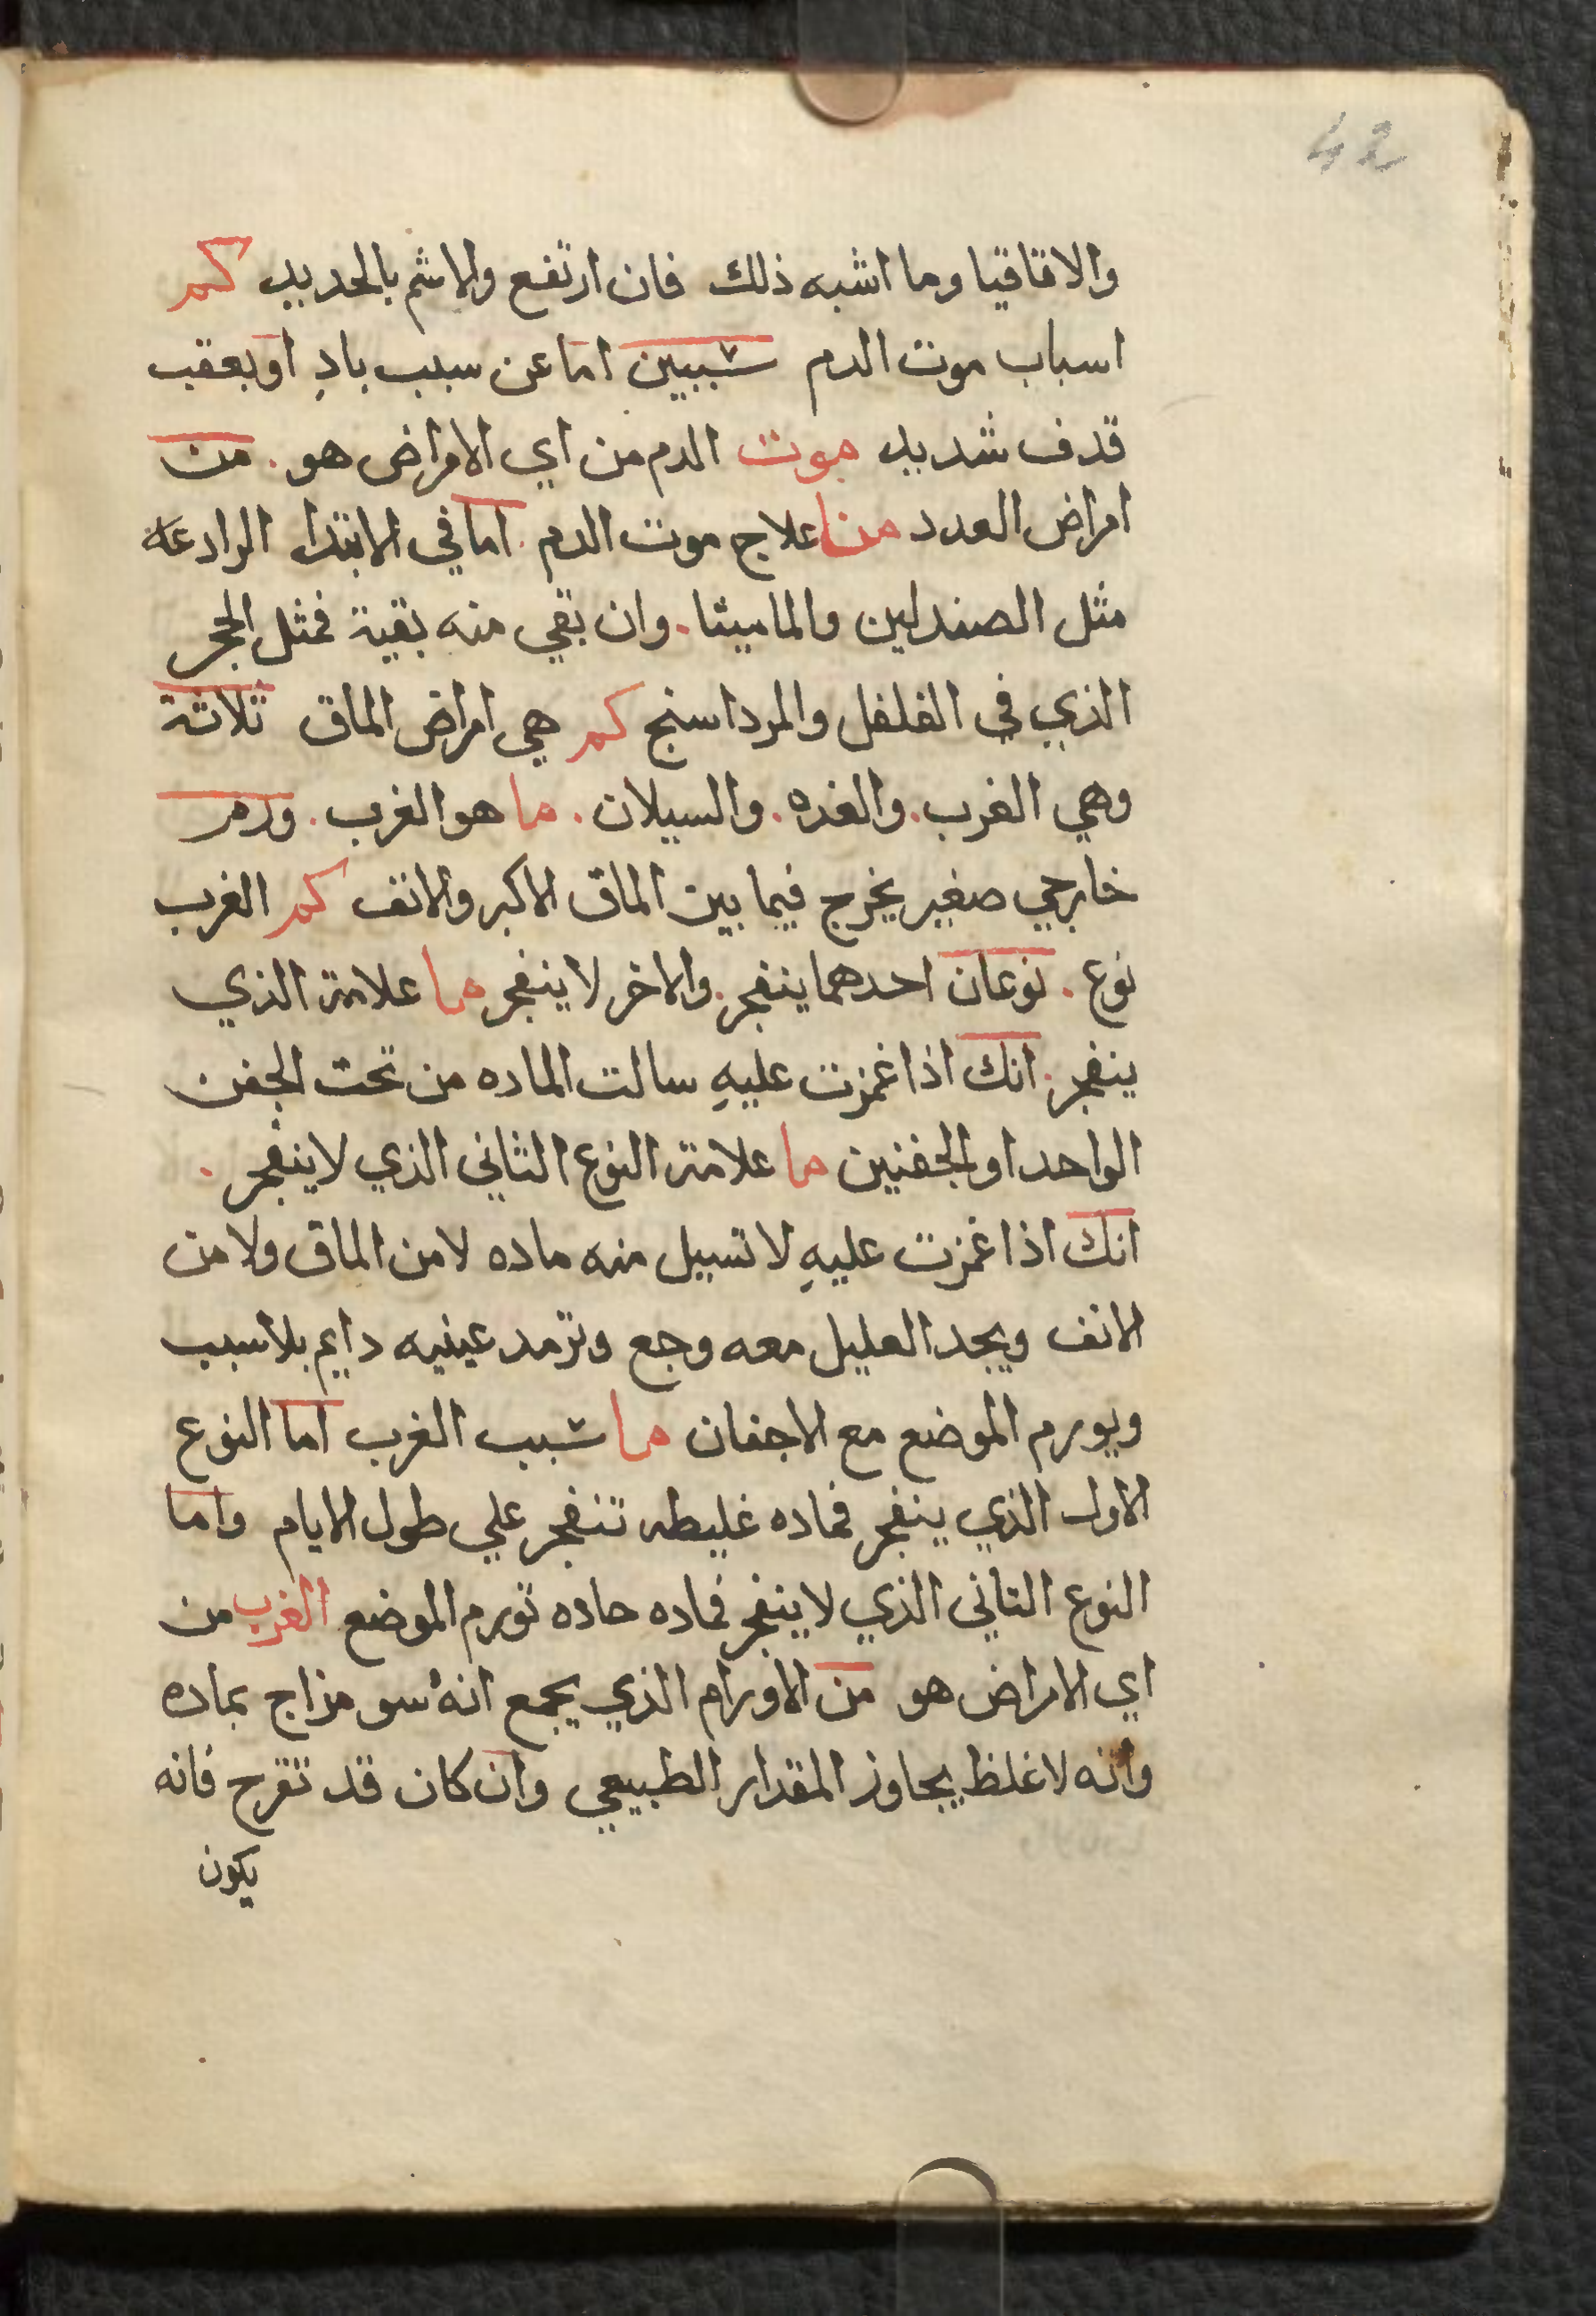 42
والاقاقيا وما اشبه ذلك فان ارتفع والاشم بالحديد كم
اسباب موت الدم سببين اما عن سبب بادِ او بعقب
قدف شديد موت الدم من اي الامراض هو. من
امراض العدد منا علاج موت الدم. اما في الابتدا الرادعة
مثل الصندلين والماميثا. وان بقي منه بقية فمثل الحجر
الذي في الفلفل والمرداسنج كم هي امراض الماق ثلاثة
وهي الغرب. والغده. والسيلان. ما هو الغرب. ورم
خارجي صغير يخرج فيما بين الماق الاكبر والانف كم الغرب
نوع. نوعان احدهما ينفجر. والاخر لا ينفجر ما علامة الذي
ينفجر. انك اذا غمزت عليهِ سالت الماده من تحت الجفن
الواحد او الجفنين ما علامة النوع الثاني الذي لا ينفجر.
انك اذا غمزت عليهِ لا تسيل منه ماده لا من الماق ولا من
الانف ويجد العليل معه وجع وترمد عينيه دايم بلا سبب
ويورم الموضع مع الاجفان ما سبب الغرب اما النوع
الاول الذي ينفجر فماده غليطه تنفجر علي طول الايام واما
النوع التاني الذي لا ينفجر فماده حاده تورم الموضع الغرب من
اي الامراض هو من الاورام الذي يجمع انه سو مزاج بماده
وانه لا غلظ يجاوز المقدار الطبيعي وان كان قد تقرح فانه
يكون